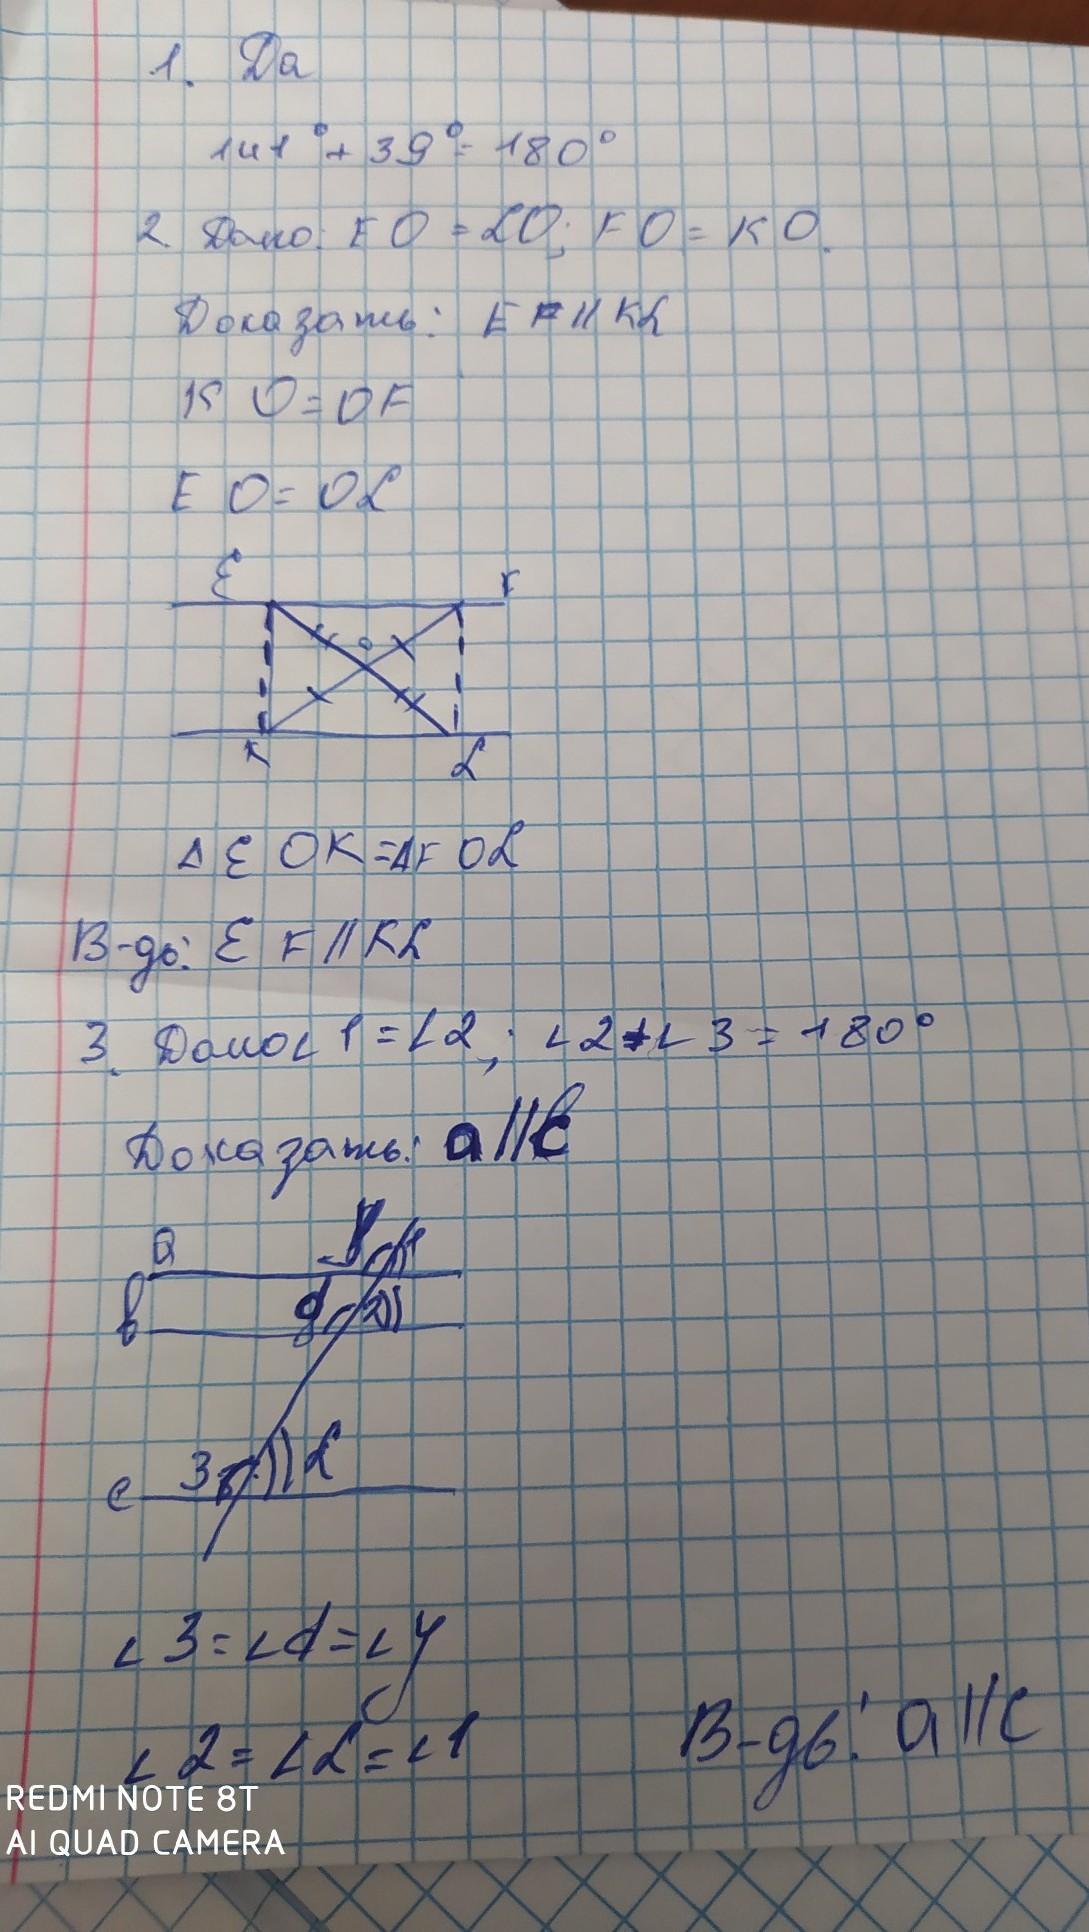 1. Да
141° + 39° = 180°
2. Дано: EO = LO; FO = KO.
Доказать: EF || KL
KO = OF
EO = OL
E F
O
K L
Δ EOK = Δ FOL
В-дь: EF || KL
3. Дано ∠1 = ∠2; ∠2 + ∠3 = 180°
Доказать: a || c
a 1
b d 2
c 3 L
∠3 = ∠d = ∠y
∠2 = ∠L = ∠1
В-дь: a || c
REDMI NOTE 8T
AI QUAD CAMERA